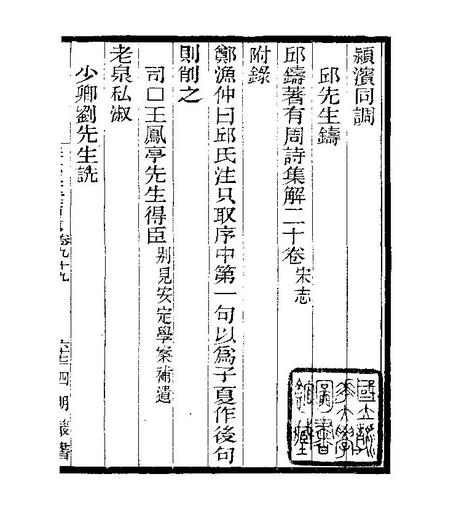 潁濱同調
邱先生鑄
邱鑄著有周詩集解二十卷宋志
附錄
鄭漁仲曰邱氏注只取序中第一句以爲子夏作後句
則削之
司口王鳳亭先生得臣別見安定學案補遺
老泉私淑
少卿劉先生詵
卷九十九
四明叢書